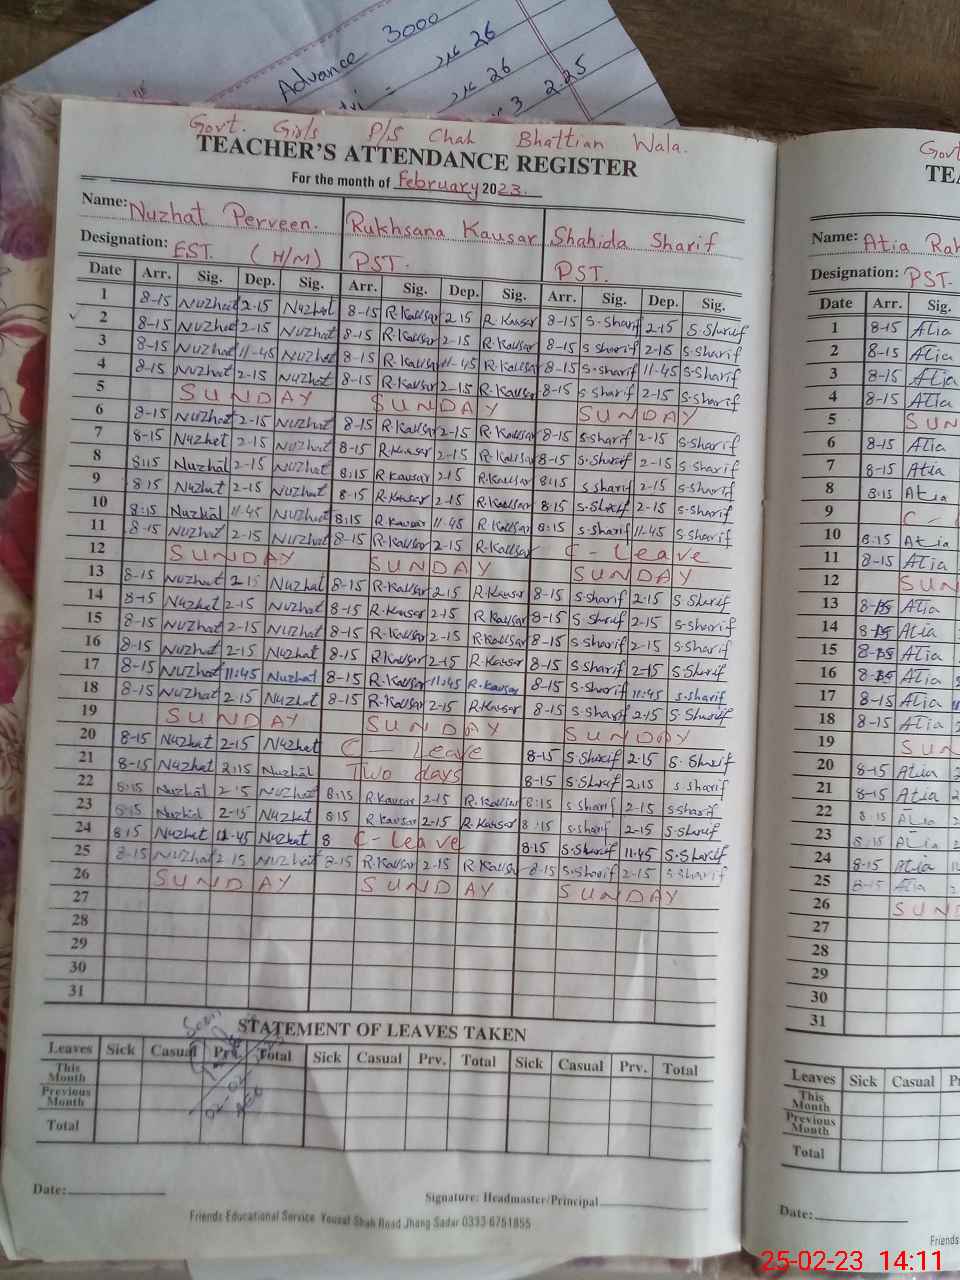 Advance 3000
26
26
3 2.25
Govt. Girls P/S Chak Bhattian Wala.
TEACHER'S ATTENDANCE REGISTER
For the month of February 2023.
Name: Nuzhat Perveen. Rukhsana Kausar Shahida Sharif
Designation: EST. (H/M) PST. PST.
Date Arr. Sig. Dep. Sig. Arr. Sig. Dep. Sig. Arr. Sig. Dep. Sig.
1 8-15 Nuzhat 2-15 Nuzhat 8-15 R.Kausar 2.15 R.Kausar 8-15 S.Sharif 2-15 S.Sharif
2 8-15 Nuzhat 2-15 Nuzhat 8-15 R.Kausar 2-15 R.Kausar 8-15 S sharif 2-15 S.sharif
3 8-15 Nuzhat 11-45 Nuzhat 8-15 R.Kausar 11-45 R.Kausar 8-15 S.sharif 11-45 S.Sharif
4 8-15 Nuzhat 2-15 Nuzhat 8-15 R.Kausar 2-15 R.Kausar 8-15 s sharif 2-15 S.sharif
5 SUNDAY SUNDAY SUNDAY
6 8-15 Nuzhat 2-15 Nuzhat 8-15 R.Kausar 2-15 R.Kausar 8-15 s.sharif 2-15 S.sharif
7 8-15 Nuzhat 2-15 Nuzhat 8-15 R.Kausar 2-15 R.Kausar 8-15 S.Sharif 2-15 S.sharif
8 8:15 Nuzhat 2-15 Nuzhat 8:15 R kausar 2-15 R.kausar 8:15 s sharif 2-15 S.sharif
9 8.15 Nuzhat 2-15 Nuzhat 8-15 R.Kausar 2-15 R.Kausar 8-15 S-Sharif 2-15 S.sharif
10 8:15 Nuzhat 11-45 Nuzhat 8:15 R kausar 11-45 R.Kausar 8:15 s sharif 11-45 S.sharif
11 8-15 Nuzhat 2-15 Nuzhat 8-15 R-Kausar 2-15 R-Kausar C - Leave
12 SUNDAY SUNDAY SUNDAY
13 8-15 Nuzhat 2-15 Nuzhat 8-15 R-Kausar 2-15 R.Kausar 8-15 s.sharif 2-15 S Sharif
14 8-15 Nuzhat 2-15 Nuzhat 8-15 R.Kausar 2-15 R.Kausar 8-15 S sharif 2-15 S.sharif
15 8-15 Nuzhat 2-15 Nuzhat 8-15 R.Kausar 2-15 R.Kausar 8-15 s sharif 2-15 S.sharif
16 8-15 Nuzhat 2-15 Nuzhat 8-15 R.Kausar 2-15 R.Kausar 8-15 S sharif 2-15 S.Sharif
17 8-15 Nuzhat 11:45 Nuzhat 8-15 R.Kausar 11:45 R.Kausar 8-15 S.sharif 11:45 s.sharif
18 8-15 Nuzhat 2-15 Nuzhat 8-15 R.Kausar 2-15 R.Kausar 8-15 S.Sharif 2-15 S.Sharif
19 SUNDAY SUNDAY SUNDAY
20 8-15 Nuzhat 2-15 Nuzhat C - Leave 8-15 S.Sharif 2.15 S.Sharif
21 8-15 Nuzhat 2:15 Nuzhat Two days 8-15 S.Sharif 2:15 s.sharif
22 8:15 Nuzhat 2-15 Nuzhat 8:15 R.Kausar 2-15 R.Kausar 8:15 s sharif 2-15 s sharif
23 8:15 Nuzhat 2-15 Nuzhat 8:15 R kausar 2-15 R.Kausar 8:15 s.sharif 2-15 S.Sharif
24 8:15 Nuzhat 11-45 Nuzhat 8 C-Leave 8.15 S.Sharif 11.45 S.Sharif
25 8-15 Nuzhat 2-15 Nuzhat 8-15 R.Kausar 2-15 R.Kausar 8-15 S.Sharif 2-15 S.sharif
26 SUNDAY SUNDAY SUNDAY
27
28
29
30
31
STATEMENT OF LEAVES TAKEN
Leaves Sick Casual Prv. Total Sick Casual Prv. Total Sick Casual Prv. Total
This Month
Previous Month
Total
Date:
Signature: Headmaster/Principal
Friends Educational Service Yousaf Shah Road Jhang Sadar 0333-6751855
Govt
TEA
Name: Atia Rah
Designation: PST.
Date Arr. Sig.
1 8-15 Atia
2 8-15 Atia
3 8-15 Atia
4 8-15 Atia
5 SUN
6 8-15 Atia
7 8-15 Atia
8 8:15 Atia
9 C -
10 8:15 Atia
11 8-15 Atia
12 SUN
13 8-15 Atia
14 8-15 Atia
15 8-15 Atia
16 8-15 Atia
17 8-15 Atia
18 8-15 Atia
19 SUN
20 8-15 Atia
21 8-15 Atia
22 8:15 Atia
23 8:15 Atia
24 8-15 Atia
25 8-15 Atia
26 SUN
27
28
29
30
31
Leaves Sick Casual
This Month
Previous Month
Total
Date:
Friends
25-02-23 14:11